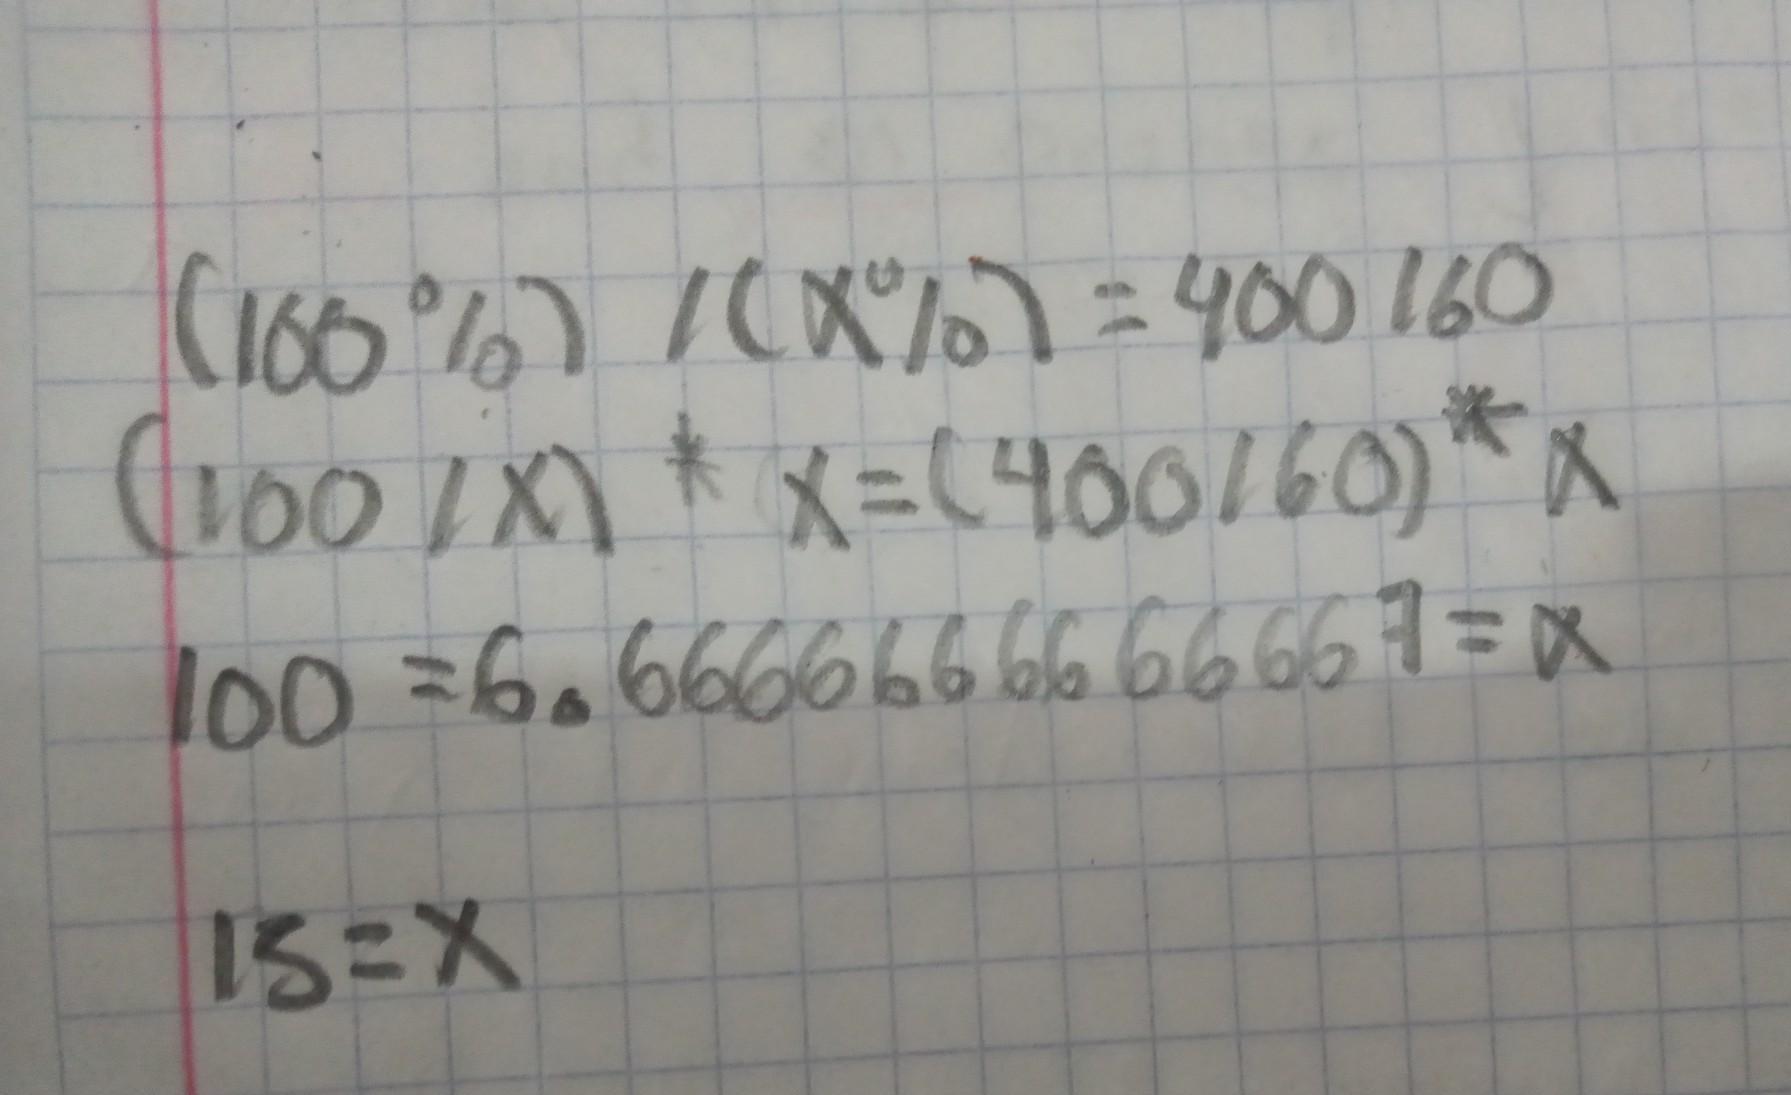 (100%) /(x%) = 400/60
(100/x) * x = (400/60) * x
100 = 6.6666666666667 = x
15 = x